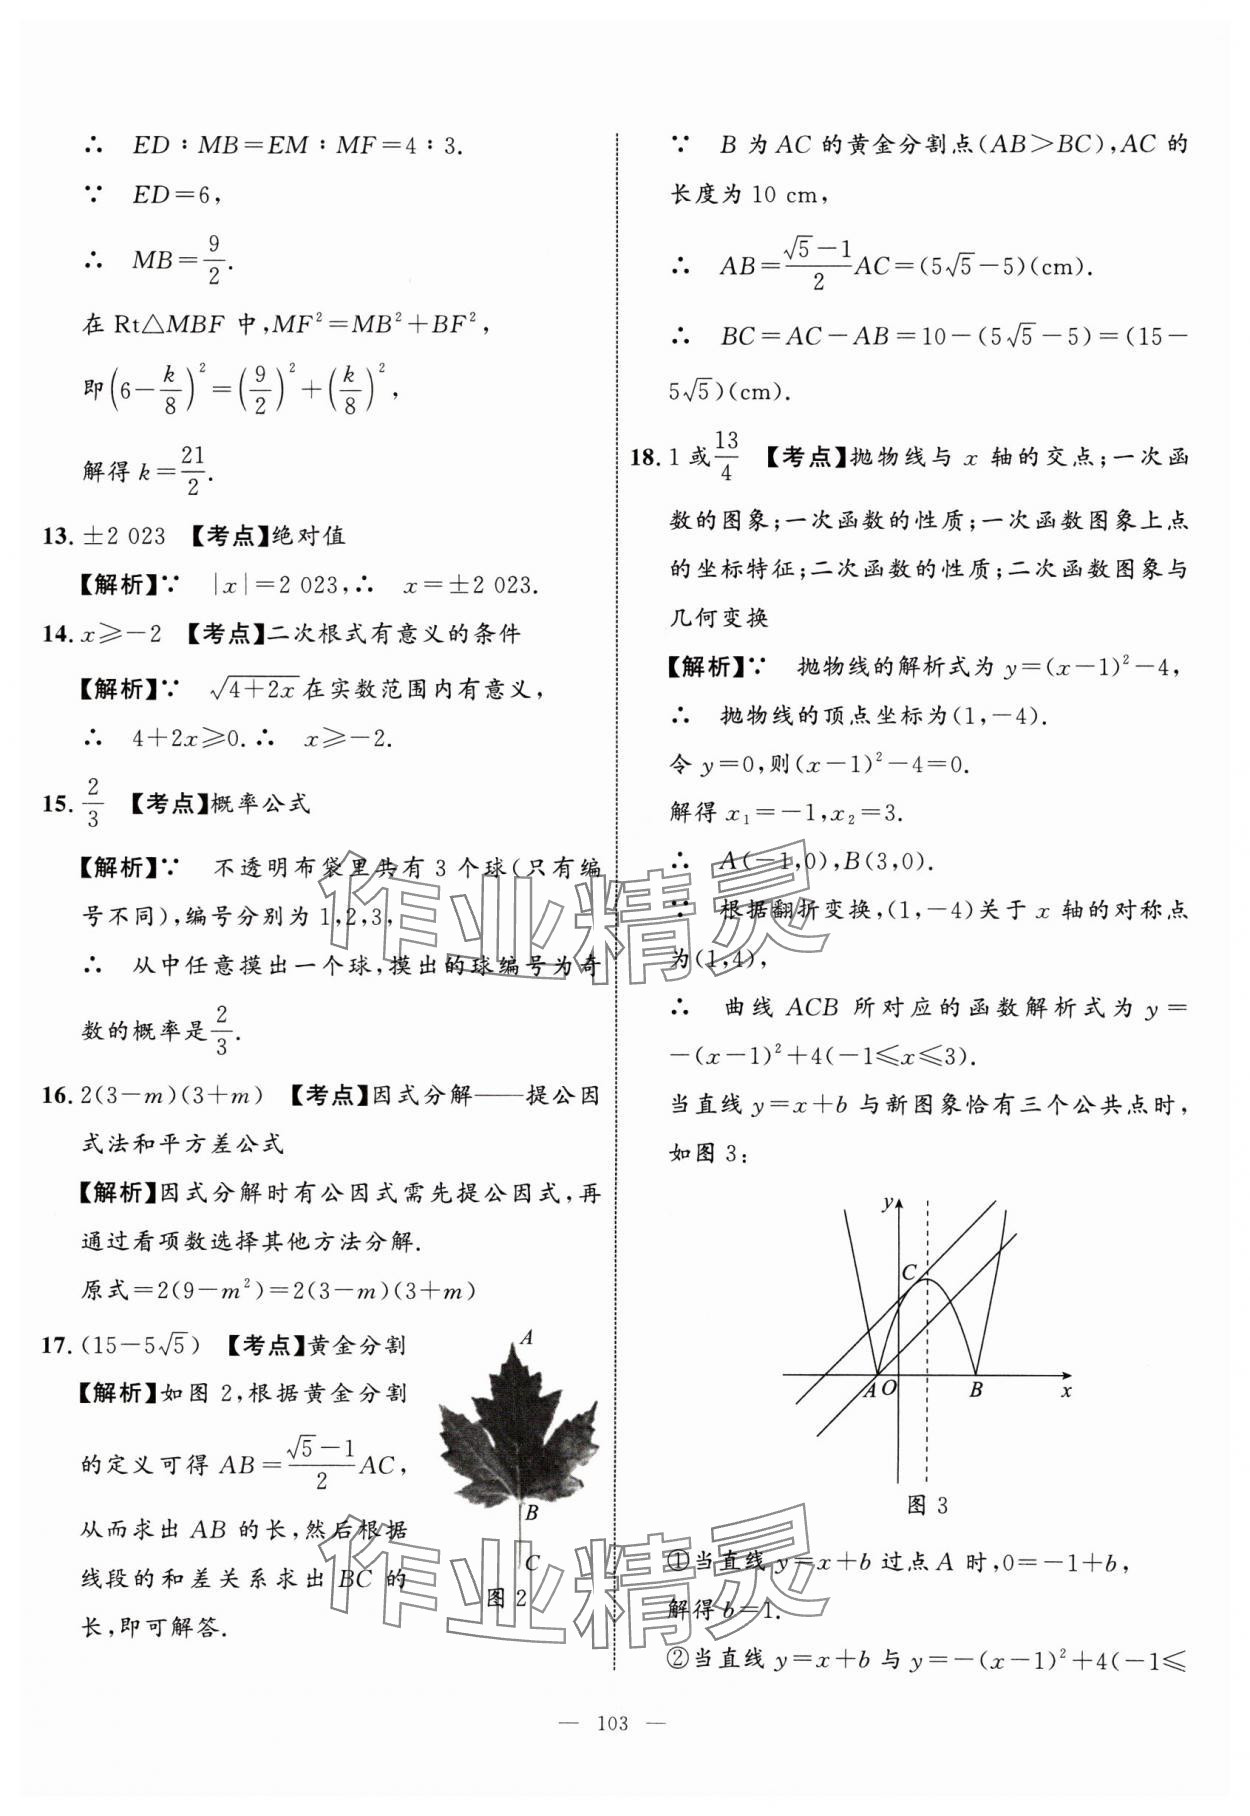 ∴ ED∶MB=EM∶MF=4∶3.
∵ ED=6,
∴ MB=9/2.
在 Rt△MBF 中,MF²=MB²+BF²,
即(6-k/8)²=(9/2)²+(k/8)²,
解得 k=21/2.
13. ±2 023 【考点】绝对值
【解析】∵ |x|=2 023,∴ x=±2 023.
14. x≥-2 【考点】二次根式有意义的条件
【解析】∵ √(4+2x)在实数范围内有意义,
∴ 4+2x≥0.∴ x≥-2.
15. 2/3 【考点】概率公式
【解析】∵ 不透明布袋里共有 3 个球(只有编
号不同),编号分别为 1,2,3,
∴ 从中任意摸出一个球,摸出的球编号为奇
数的概率是2/3.
16. 2(3-m)(3+m) 【考点】因式分解——提公因
式法和平方差公式
【解析】因式分解时有公因式需先提公因式,再
通过看项数选择其他方法分解.
原式=2(9-m²)=2(3-m)(3+m)
17. (15-5√5) 【考点】黄金分割
【解析】如图 2,根据黄金分割
的定义可得 AB=(√5-1)/2 AC,
从而求出 AB 的长,然后根据
线段的和差关系求出 BC 的
长,即可解答.
A
B
C
图 2
∵ B 为 AC 的黄金分割点(AB>BC),AC 的
长度为 10 cm,
∴ AB=(√5-1)/2 AC=(5√5-5)(cm).
∴ BC=AC-AB=10-(5√5-5)=(15-
5√5)(cm).
18. 1 或13/4 【考点】抛物线与 x 轴的交点;一次函
数的图象;一次函数的性质;一次函数图象上点
的坐标特征;二次函数的性质;二次函数图象与
几何变换
【解析】∵ 抛物线的解析式为 y=(x-1)²-4,
∴ 抛物线的顶点坐标为(1,-4).
令 y=0,则(x-1)²-4=0.
解得 x₁=-1,x₂=3.
∴ A(-1,0),B(3,0).
∵ 根据翻折变换,(1,-4)关于 x 轴的对称点
为(1,4),
∴ 曲线 ACB 所对应的函数解析式为 y=
-(x-1)²+4(-1≤x≤3).
当直线 y=x+b 与新图象恰有三个公共点时,
如图 3:
y
C
A O B x
图 3
①当直线 y=x+b 过点 A 时,0=-1+b,
解得 b=1.
②当直线 y=x+b 与 y=-(x-1)²+4(-1≤
作业精灵
作业精灵
— 103 —